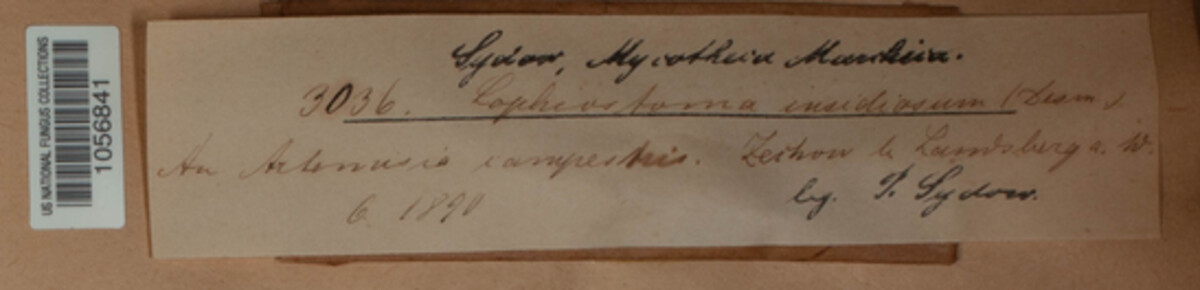 US NATIONAL FUNGUS COLLECTIONS
1056841
Sydow, Mycotheca Marchica.
3036. Lophiostoma insidiosum (Desm.).
An Artemisia campestris. Zechow b. Landsberg a. W.
6. 1890
leg. P. Sydow.